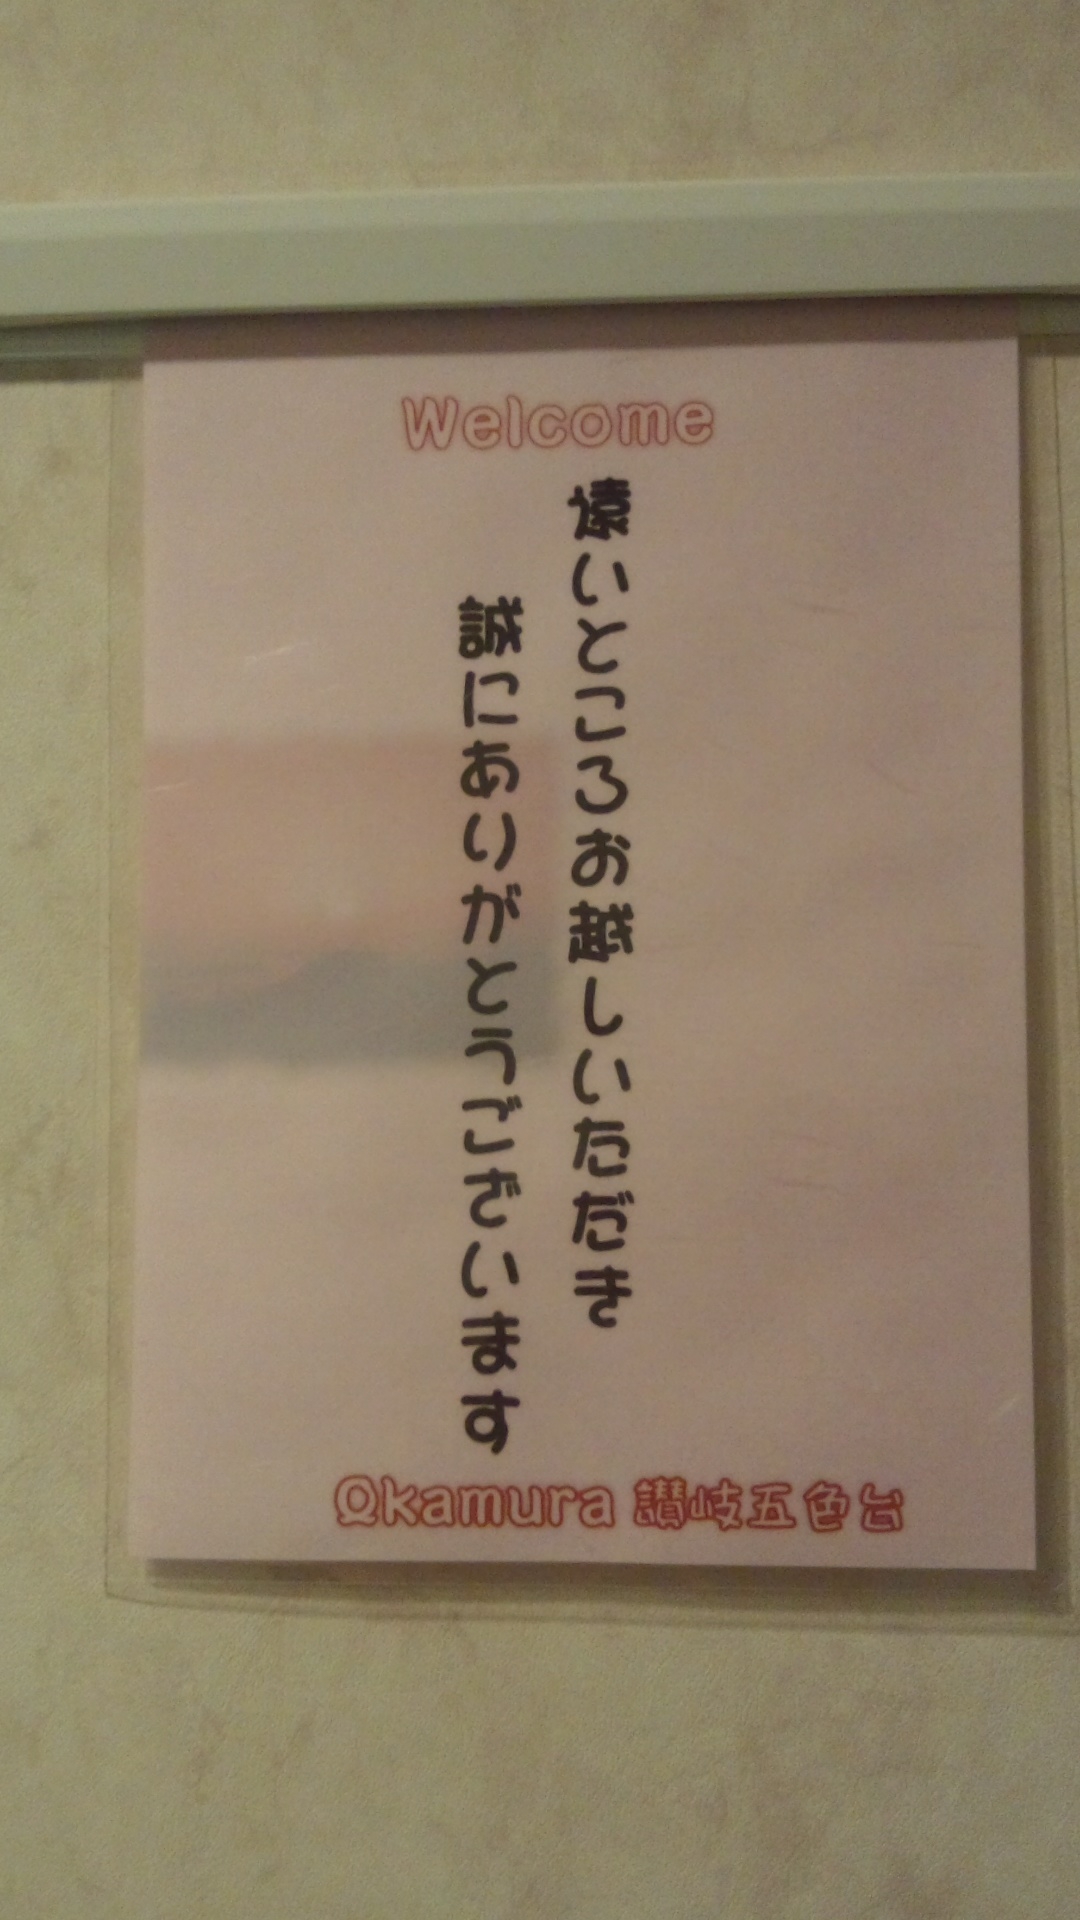 Welcome
遠いところお越しいただき
誠にありがとうございます
Okamura 讃岐五色台